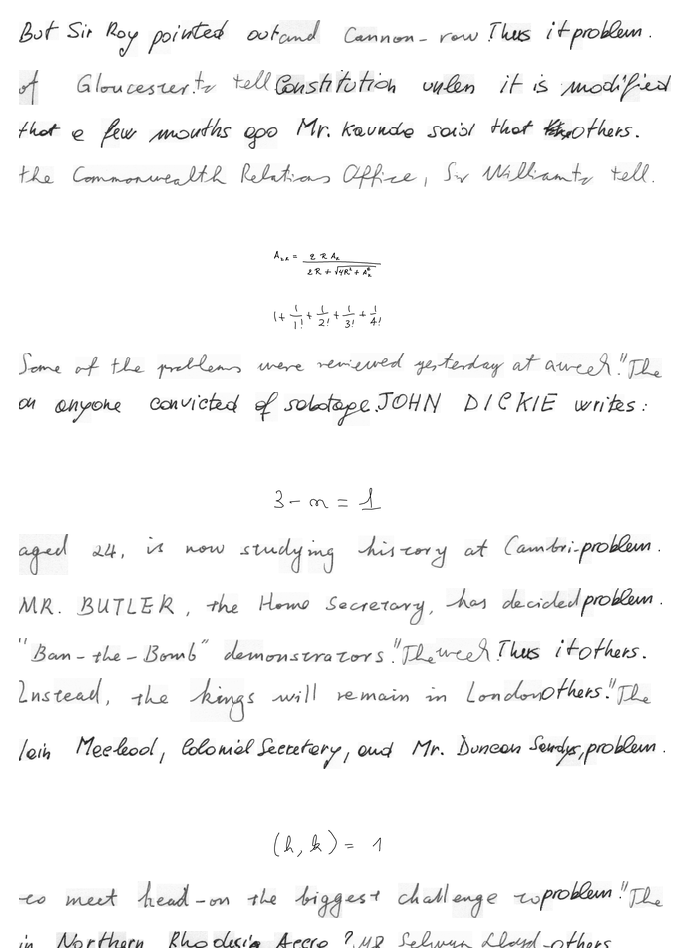 But Sir Roy pointed out and Cannon-row Thus it problem.
of Gloucester. to tell Constitution unless it is modified
that a few months ago Mr. Kaunda said that others.
the Commonwealth Relations Office, Sir William to tell.
A_{2n} = \frac{2 R A_n}{2R + \sqrt{4R^2 + A_n^2}}
1 + \frac{1}{1!} + \frac{1}{2!} + \frac{1}{3!} + \frac{1}{4!}
Some of the problems were reviewed yesterday at a week. "The
on anyone convicted of sabotage. JOHN DICKIE writes:
3 - n = 1
aged 24, is now studying history at Cambri- problem.
MR. BUTLER, the Home Secretary, has decided problem.
"Ban-the-Bomb" demonstrators. "The week. Thus it others.
Instead, the kings will remain in London others. "The
Iain Macleod, Colonial Secretary, and Mr. Duncan Sandys, problem.
(h, k) = 1
to meet head-on the biggest challenge to problem. "The
in Northern Rhodesia Accra? MR Selwyn Lloyd- others